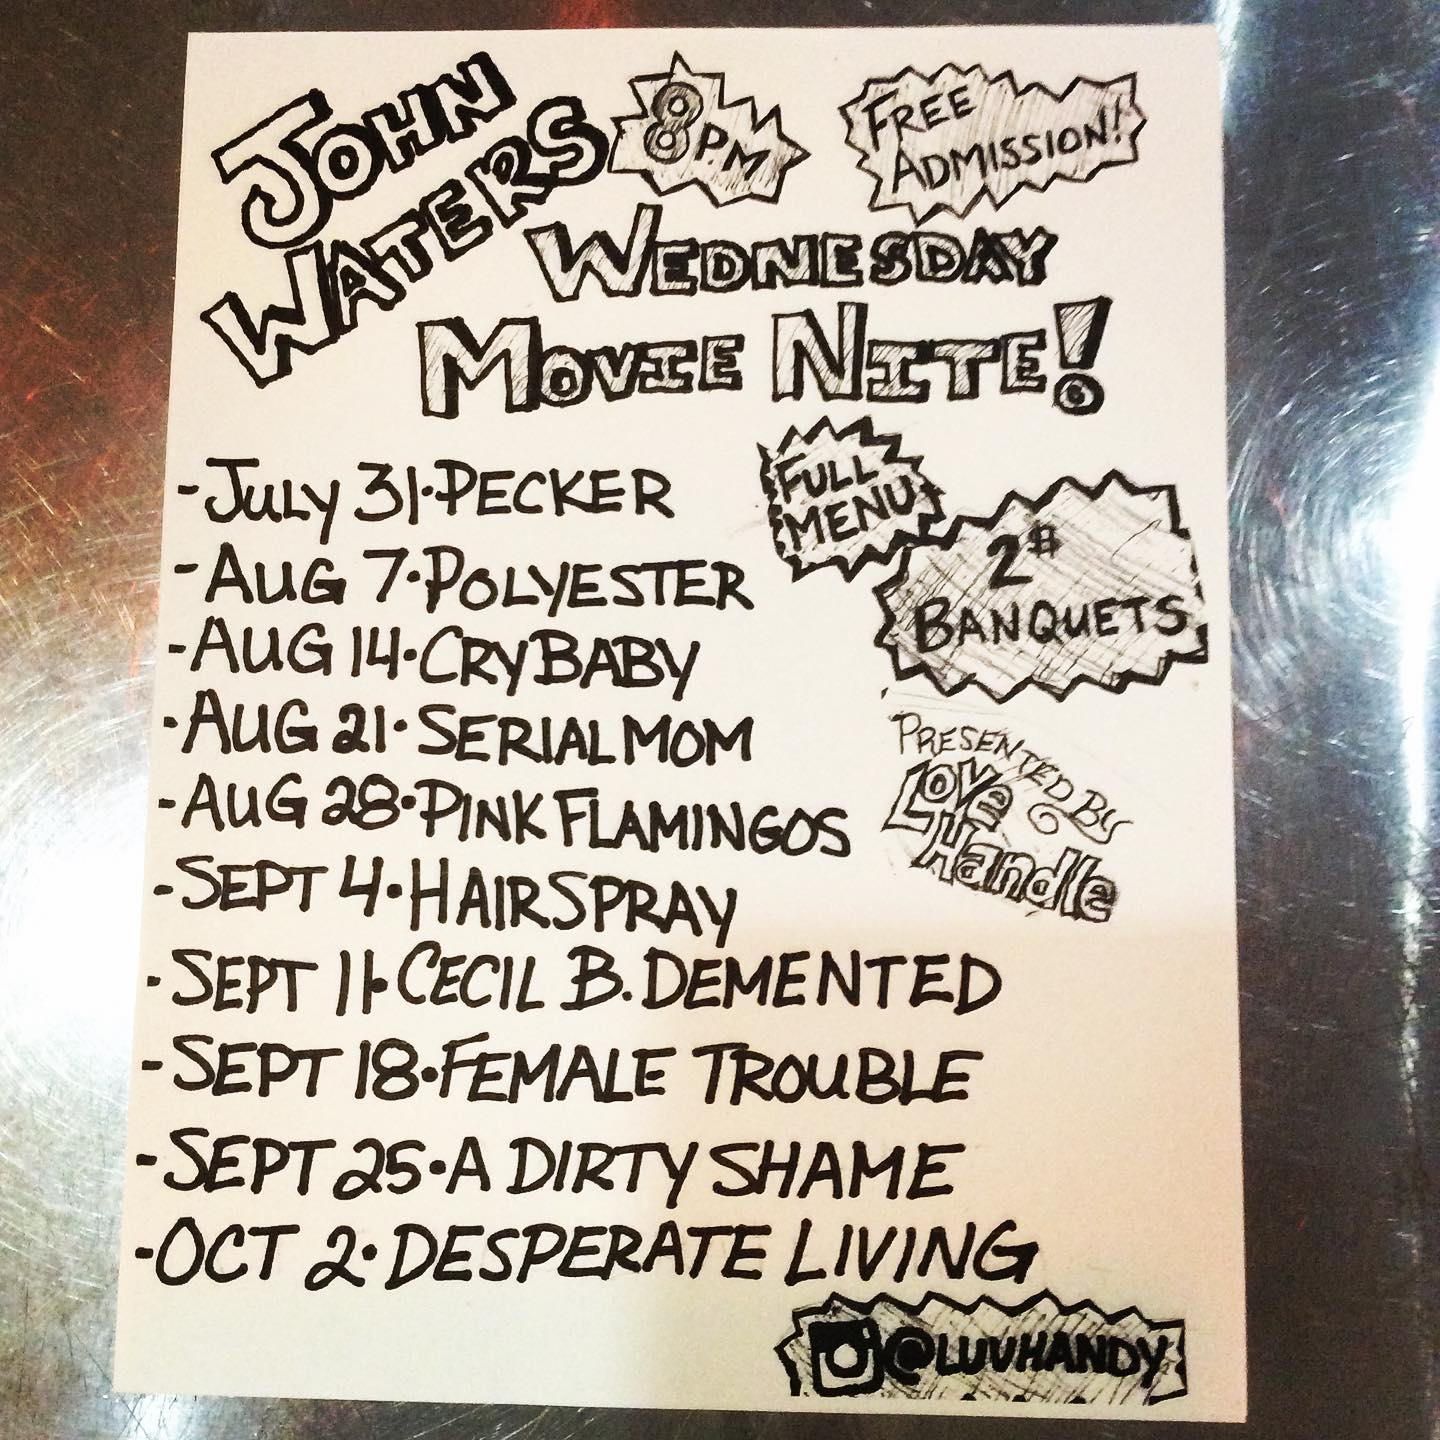 JOHN
WATERS
8PM
FREE
ADMISSION!
WEDNESDAY
MOVIE NITE!
FULL
MENU
2#
BANQUETS
PRESENTED BY
LOVE
Handle
-JULY 31·PECKER
-AUG 7·POLYESTER
-AUG 14·CRYBABY
-AUG 21·SERIAL MOM
-AUG 28·PINK FLAMINGOS
-SEPT 4·HAIRSPRAY
-SEPT 11·CECIL B. DEMENTED
-SEPT 18·FEMALE TROUBLE
-SEPT 25·A DIRTY SHAME
-OCT 2·DESPERATE LIVING
@LUVHANDY